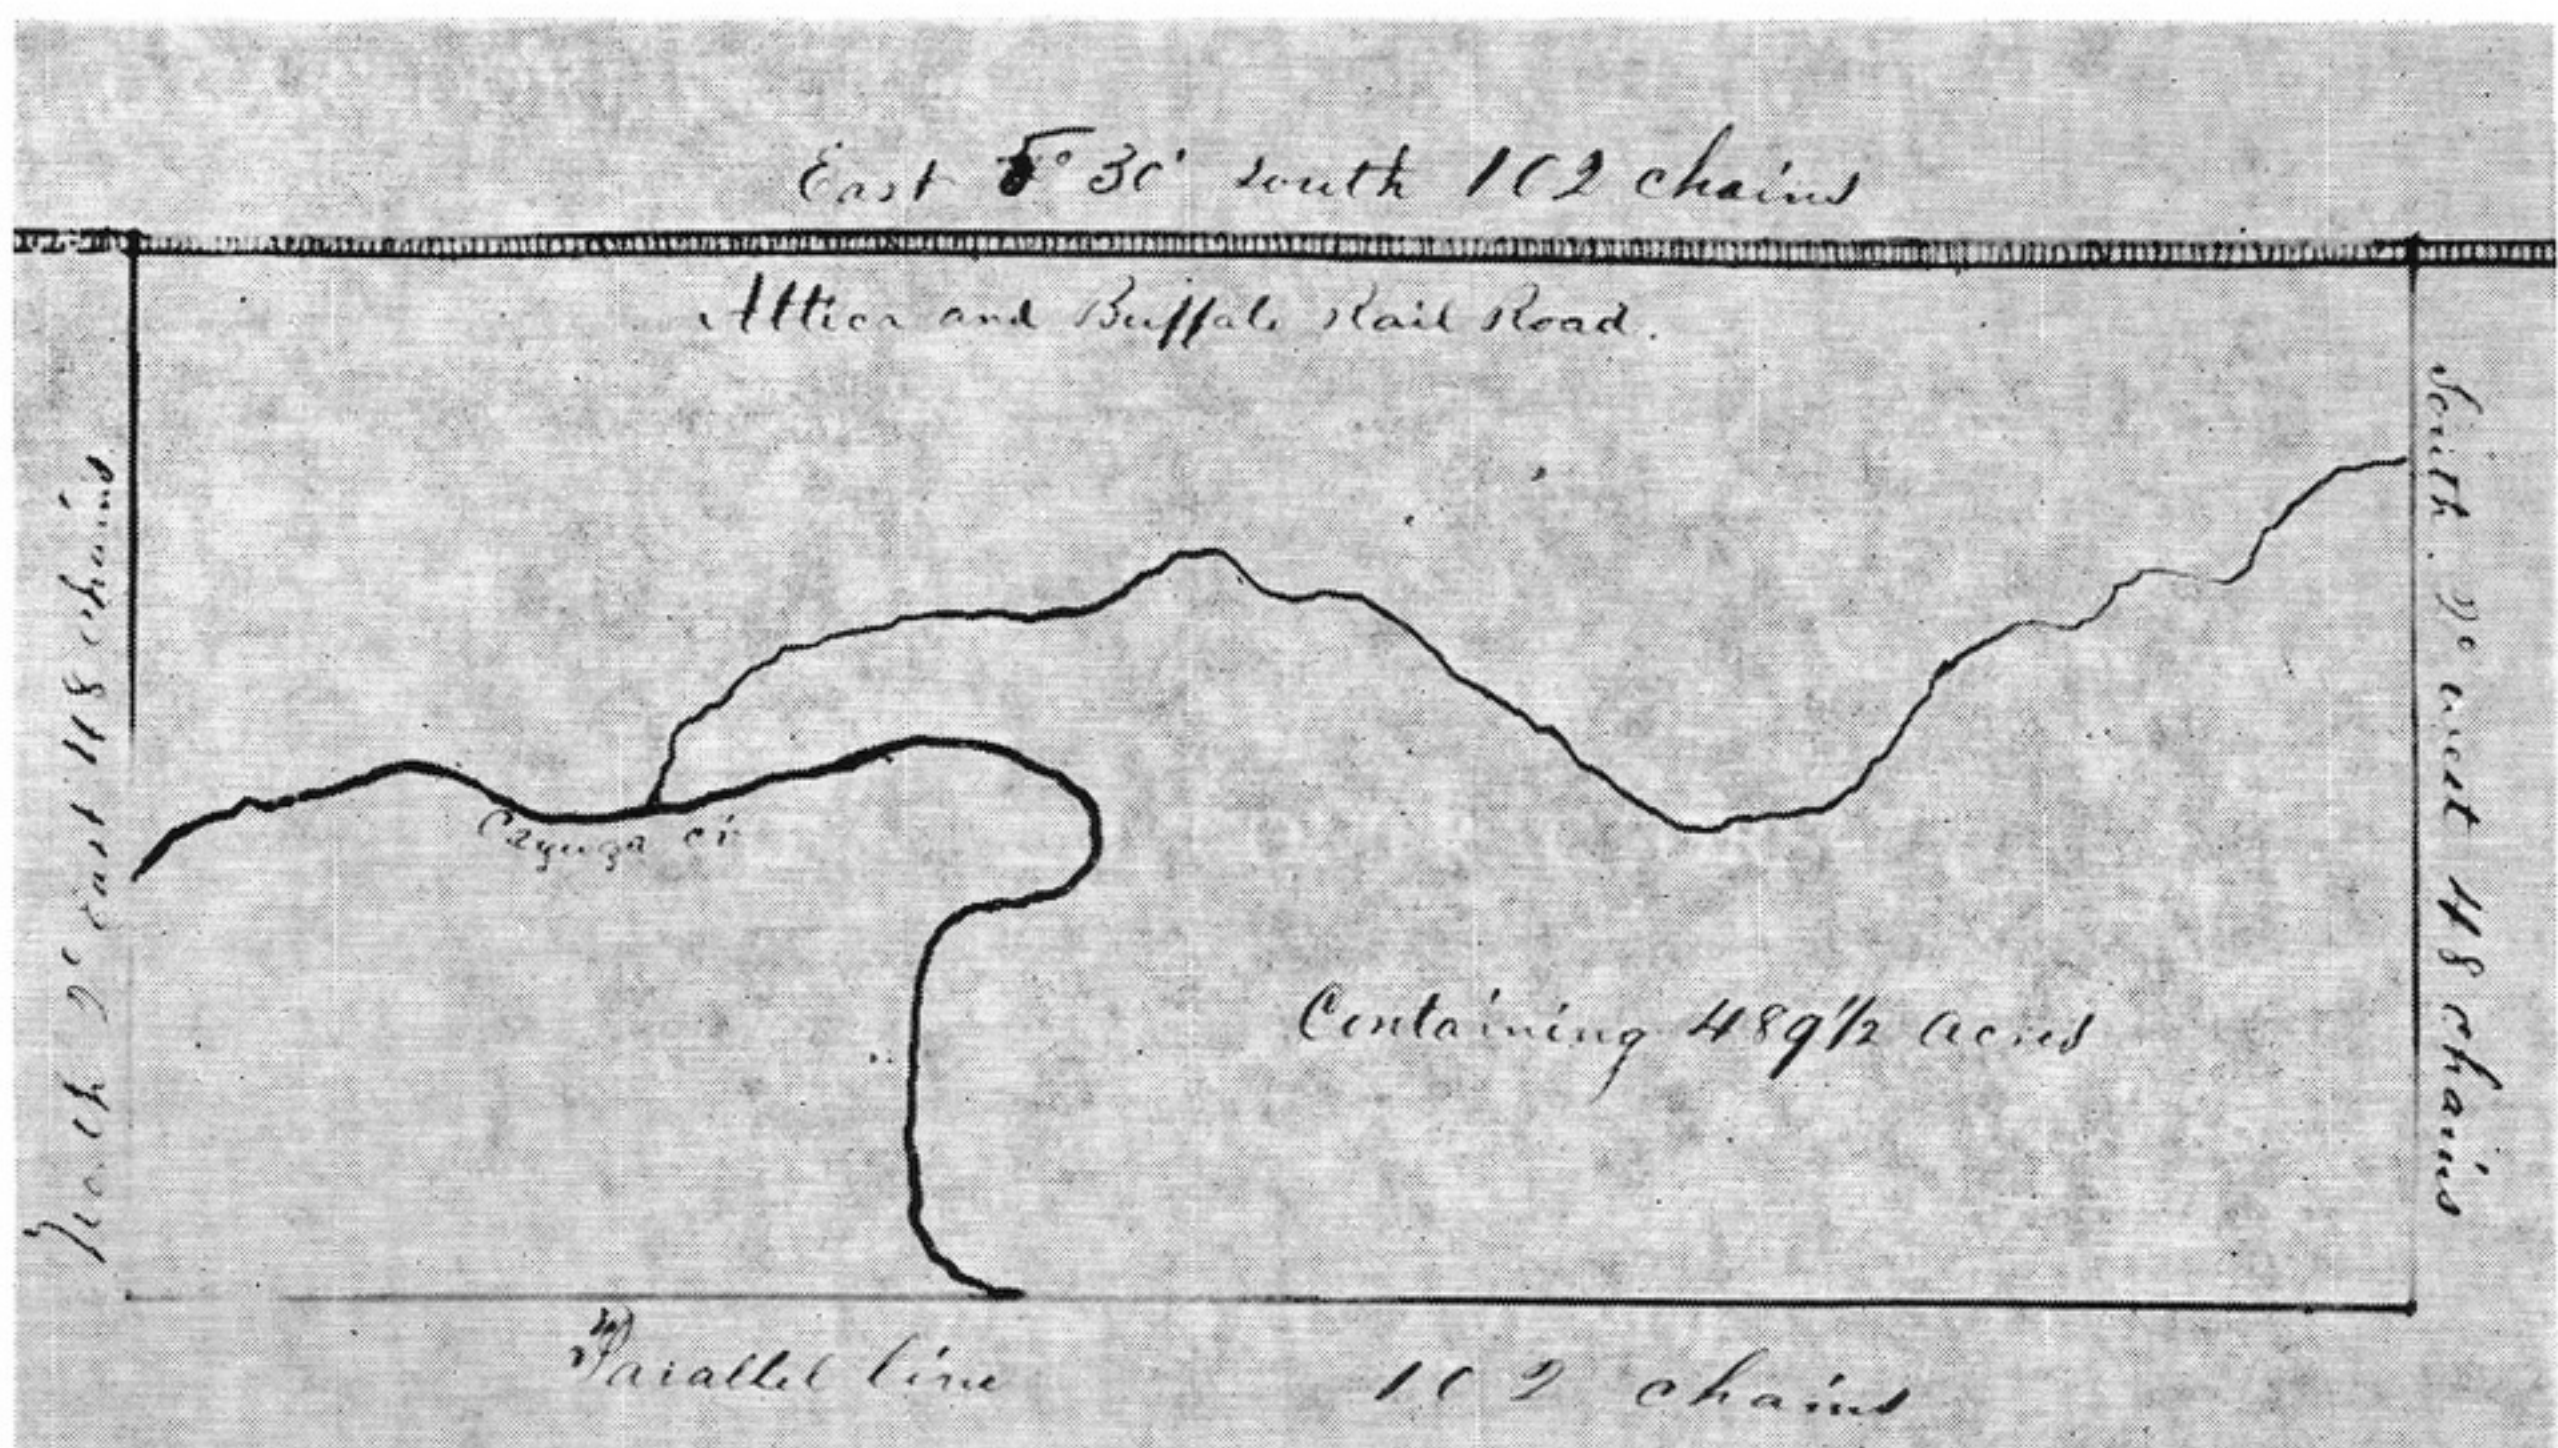 East 5° 30' south 102 chains
Attica and Buffalo Rail Road.
North 2° east 48 chains
South 2° west 48 chains
Cayuga cr
Containing 489 1/2 acres
Parallel line 102 chains